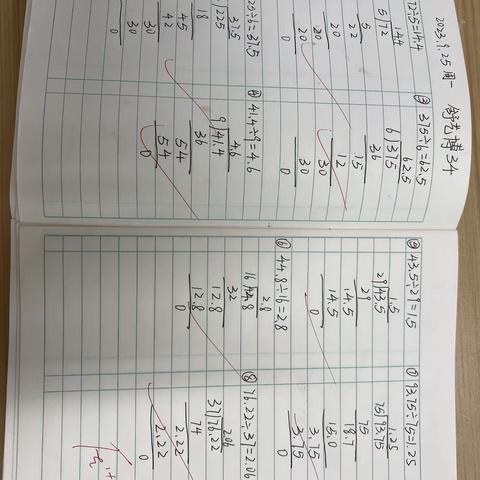 2023.9.25 周一 34
72÷5=14.4
14.4
5)72
5
22
20
20
20
0
③ 375÷6=62.5
62.5
6)375
36
15
12
30
30
0
25÷6=37.5
37.5
)225
18
45
42
30
30
0
41.4÷9=4.6
4.6
9)41.4
36
54
54
0
43.5÷29=1.5
1.5
29)43.5
29
14.5
14.5
0
⑦ 93.75÷75=1.25
1.25
75)93.75
75
18.7
15.0
3.75
3.75
0
⑥ 44.8÷16=2.8
2.8
16)44.8
32
12.8
12.8
0
⑧ 76.22÷37=2.06
2.06
37)76.22
74
2.22
2.22
0